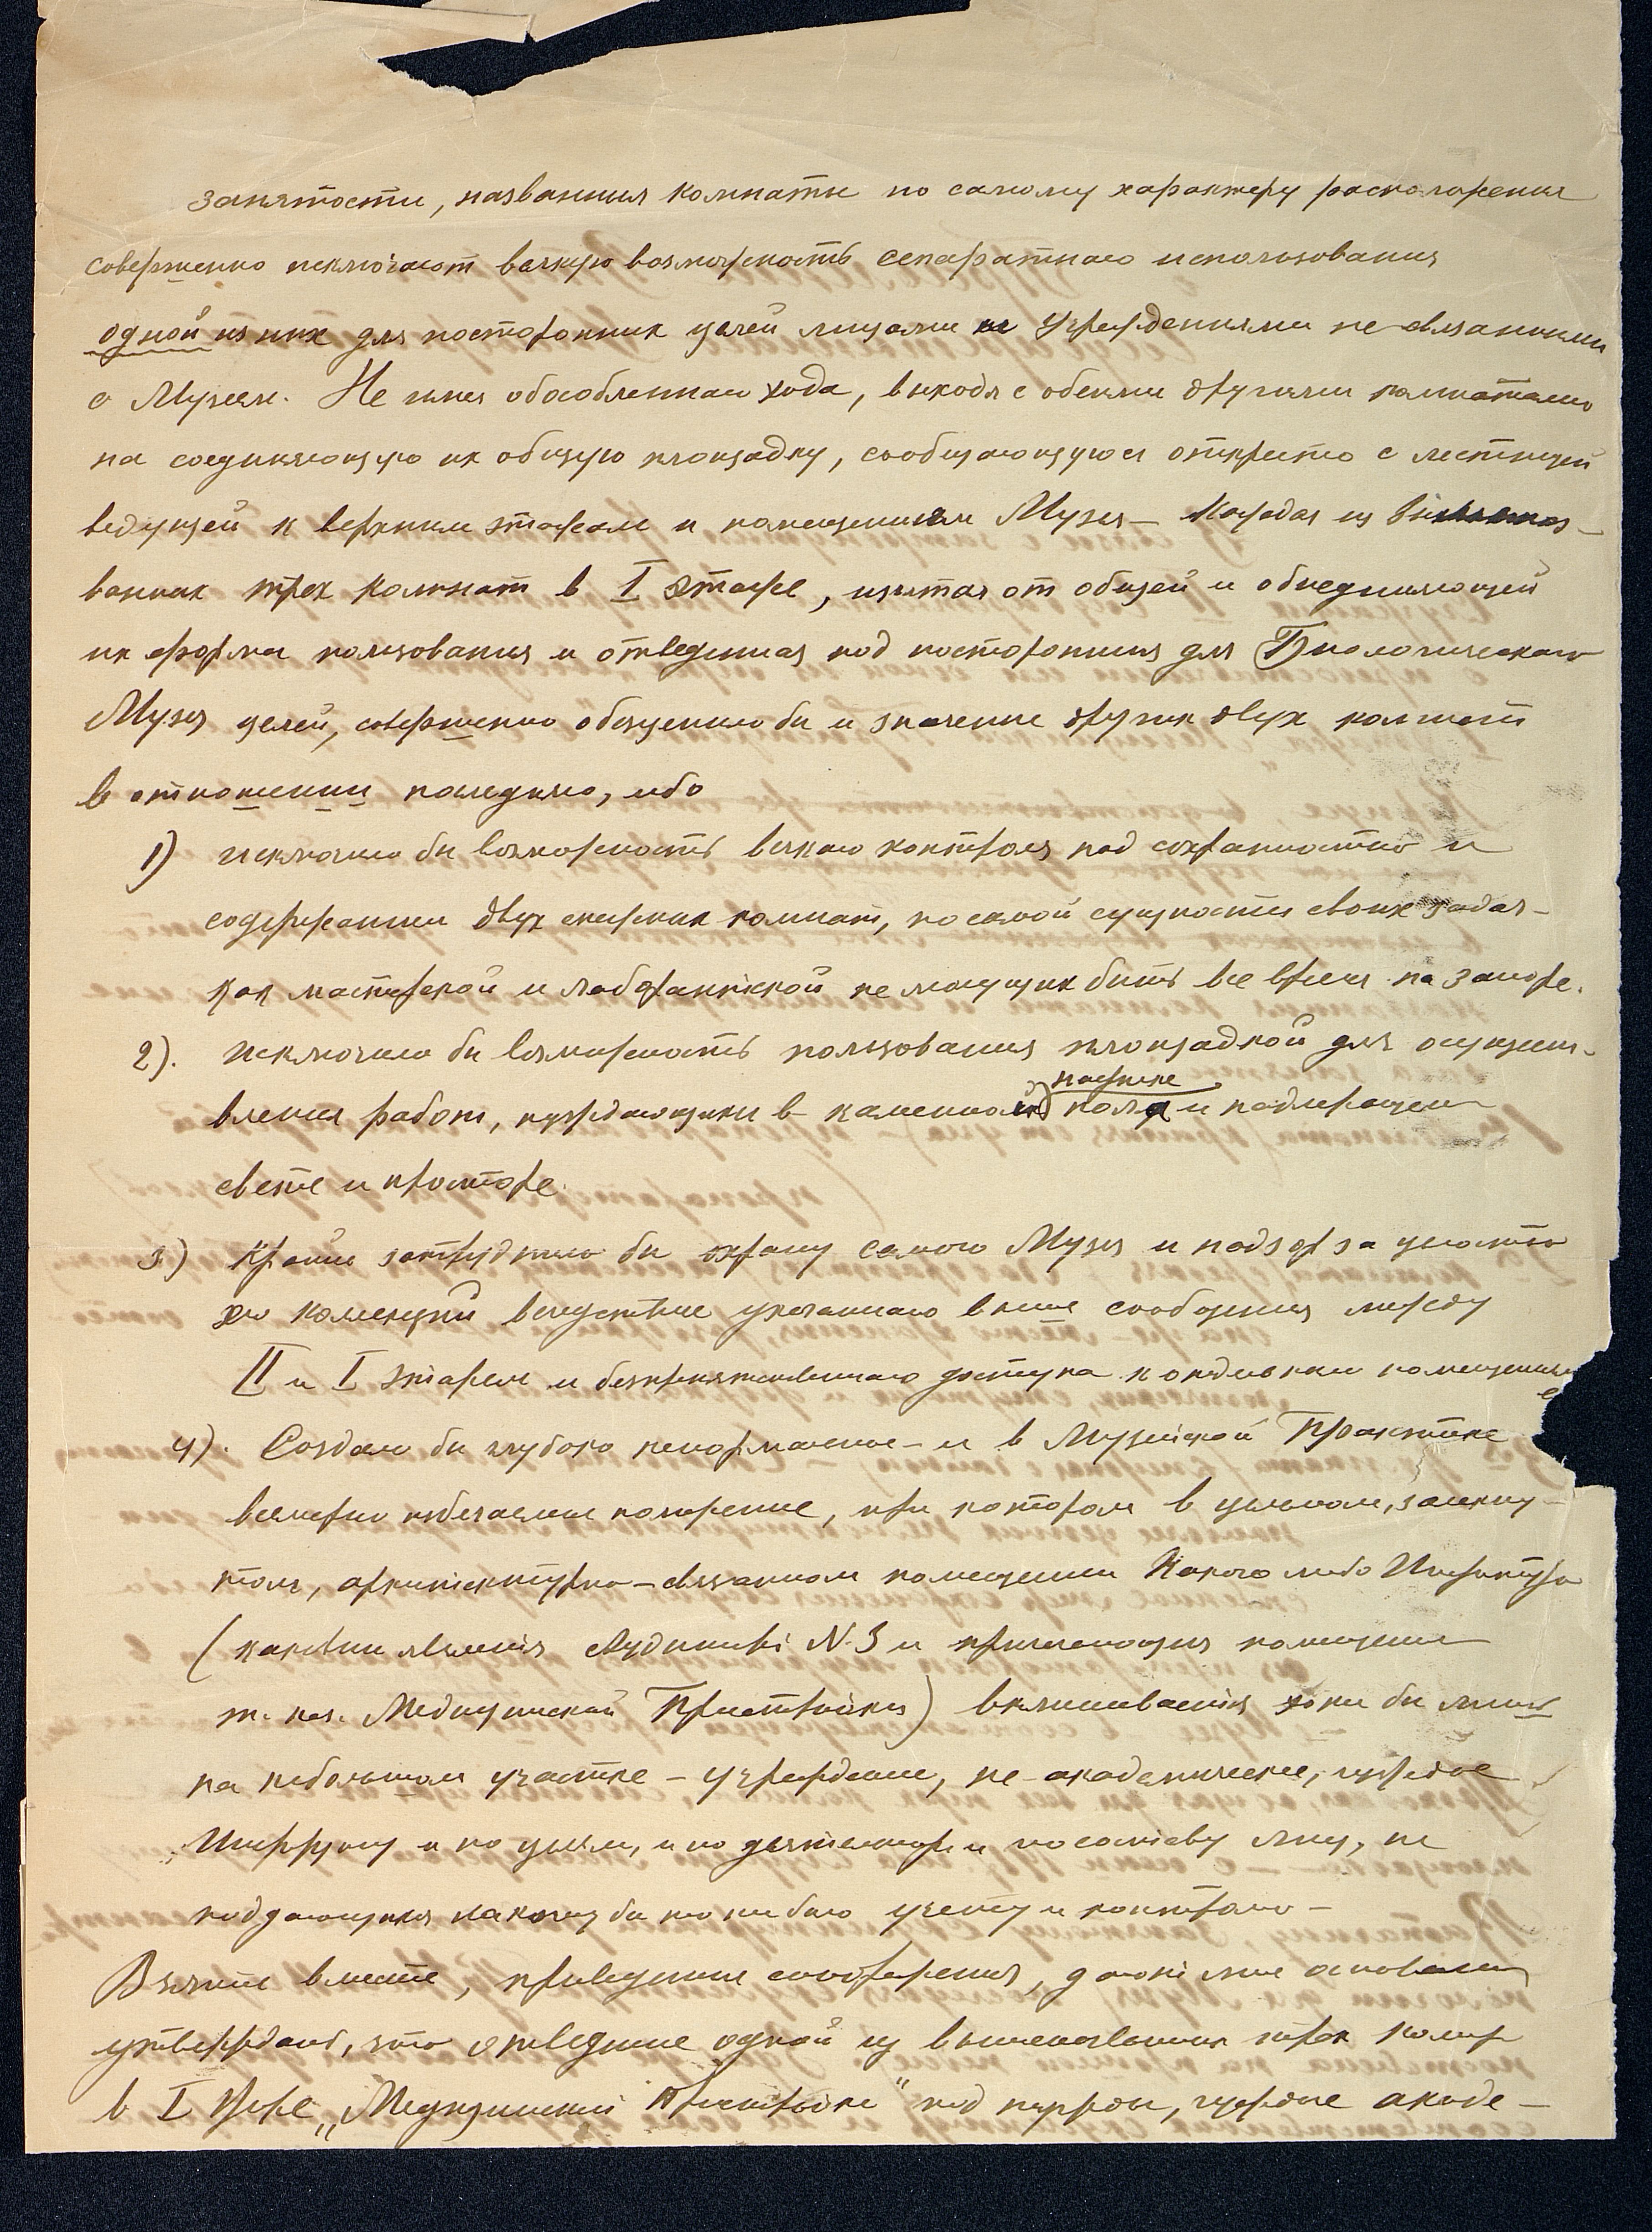 занятости, названныя комнаты по самому характеру расположения
совершенно исключают всякую возможность сепаратного использования
одной из них для посторонних целей лицами и учреждениями не связанными
с Музеем. Не имея обособленнаго хода, выходя с обеими другими комнатами
на соединяющую их общую площадку, сообщающуюся открыто с лестницей
ведущей к верхним этажам и помещениям Музея — Каждая из
ванных трех комнат в I этаже, изъятая от общей и объединяющей
их формы пользования и отведенная под посторонния для Биологическаго
Музея целей, совершенно обесценило бы и значение других двух комнат
в отношении последняго, ибо
1) исключило бы возможность всякаго контроля над сохранностью и
содержанием двух смежных комнат, по самой сущности своих задач —
как мастерской и лаборантской не могущих быть все время на запоре.
2). исключило бы возможность пользования площадкой для осущест-
вления работ, нуждающихся в каменном поле и надлежащем
свете и просторе.
3) Крайне затруднило бы охрану самого Музея и надзор за целостью
его коллекций вследствие указаннаго выше сообщения между
II и I этажем и безпрепятственнаго доступа к отдельным помещениям
4). Создало бы глубоко ненормальное — и в Музейской Практике
всемерно избегаемое положение, при котором в цельном, замкну-
том, архитектурно-связанном помещении Какого либо Института
(каковым являются Аудитория N. 3 и прилегающия помещения
т. наз. Медицинской Пристройки) вклинивается хотя бы лишь
на небольшом участке — учреждение, не академическое, чуждое
и по целям, и по деятельности и по составу лиц, не
поддающихся какому бы то ни было учету и контролю —
Взятые вместе, приведенные соображения, дают мне основание
утверждать, что отведение одной из вышеназванных трех комнат
в I этаже „Медицинской Пристройки" под нужды, чуждые акаде-